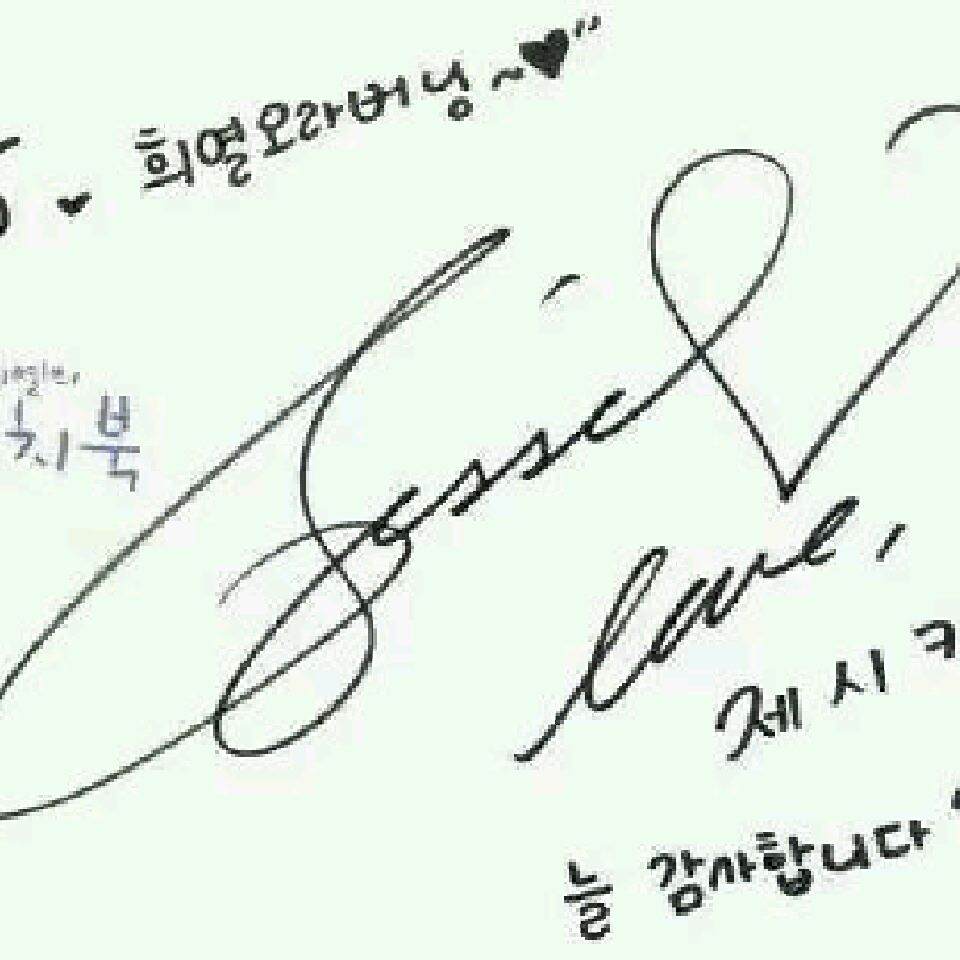 희열오라버닝~♥"
Jessica
love,
제시카
늘 감사합니다